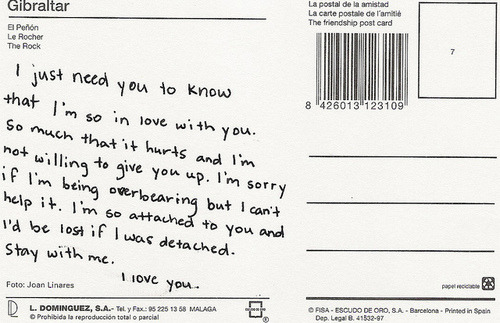 Gibraltar
El Peñón
Le Rocher
The Rock
I just need you to know
that I'm so in love with you.
So much that it hurts and I'm
not willing to give you up. I'm sorry
if I'm being overbearing but I can't
help it. I'm so attached to you and
I'd be lost if I was detached.
Stay with me.
I love you.
Foto: Joan Linares
L. DOMINGUEZ, S.A.- Tel. y Fax.: 95 225 13 58 MALAGA
© Prohibida la reproducción total o parcial
La postal de la amistad
La carte postale de l'amitié
The friendship post card
8 426013 123109
7
papel reciclable
© FISA - ESCUDO DE ORO, S.A. - Barcelona - Printed in Spain
Dep. Legal B. 41532-97